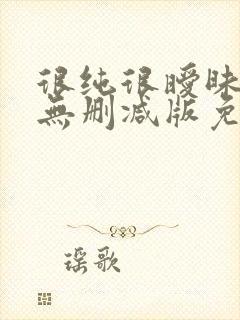 很纯很暧昧
無删减版免
谣歌